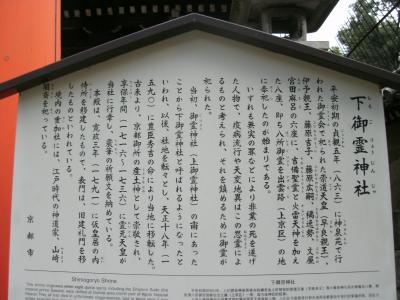 下御霊神社
しもごりょうじんじゃ
平安初期の貞観五年(八六三)に神泉苑で行
われた御霊会で祀られた崇道天皇(早良親王)、
伊予親王、藤原吉子、藤原広嗣、橘逸勢、文屋
宮田麻呂の六座に、吉備聖霊と火雷天神を加え
た八座、即ち八所御霊を出雲路(上京区)の地
に奉祀したのが始まりである。
いずれも無実の罪などにより非業の死を遂げ
た人物で、疫病流行や天変地異はこの怨霊によ
るものと考えられ、それを鎮めるために御霊が
祀られた。
当初、御霊神社(上御霊神社)の南にあった
ことから下御霊神社と呼ばれるようになったと
いわれ、以後、社地を転々とし、天正十八年(一
五九〇)に豊臣秀吉の命により当地に移転した。
古来より、京都御所の産土神として崇敬され、
享保年間(一七一六~一七三六)に霊元天皇が
当社に行幸し、宸筆の祈願文を納めている。
本殿は、寛政三年(一七九一)に仮皇居の内
侍所を移建したもので、表門は、旧建礼門を移
したものといわれている。
境内の垂加社には、江戸時代の神道家、山崎
闇斎を祀っている。
京都市
Shimogoryo Shrine
下御霊神社